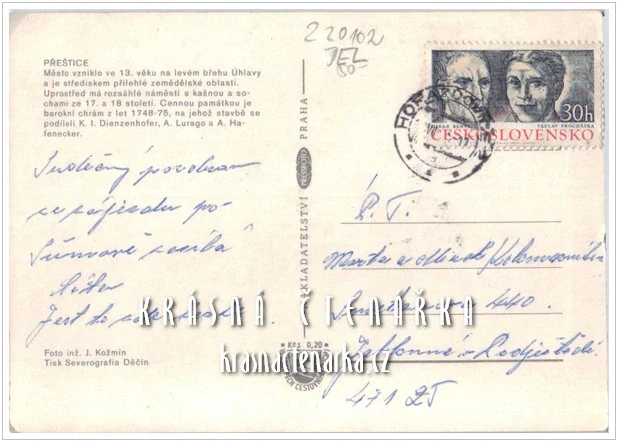 220102
JEL
50-
PŘEŠTICE
Město vzniklo ve 13. věku na levém břehu Úhlavy
a je střediskem přilehlé zemědělské oblasti.
Uprostřed má rozsáhlé náměstí s kašnou a so-
chami ze 17. a 18 století. Cennou památkou je
barokní chrám z let 1748-75, na jehož stavbě se
podíleli K. I. Dienzenhofer, A. Lurago a A. Ha-
fenecker.
30h
VÁCLAV PROCHÁZKA
ČESKOSLOVENSKO
Srdečný pozdrav
ze zájezdu po
Šumavě
Jest to
Foto inž. J. Kožmín
Tisk Severografia Děčín
NAKLADATELSTVÍ PRESSFOTO PRAHA
Kčs 0,20
P. T.
Marta a
440.
Jablonné v Podještědí.
471 25
KRÁSNÁ ČTENÁŘKA
krasnactenarka.cz